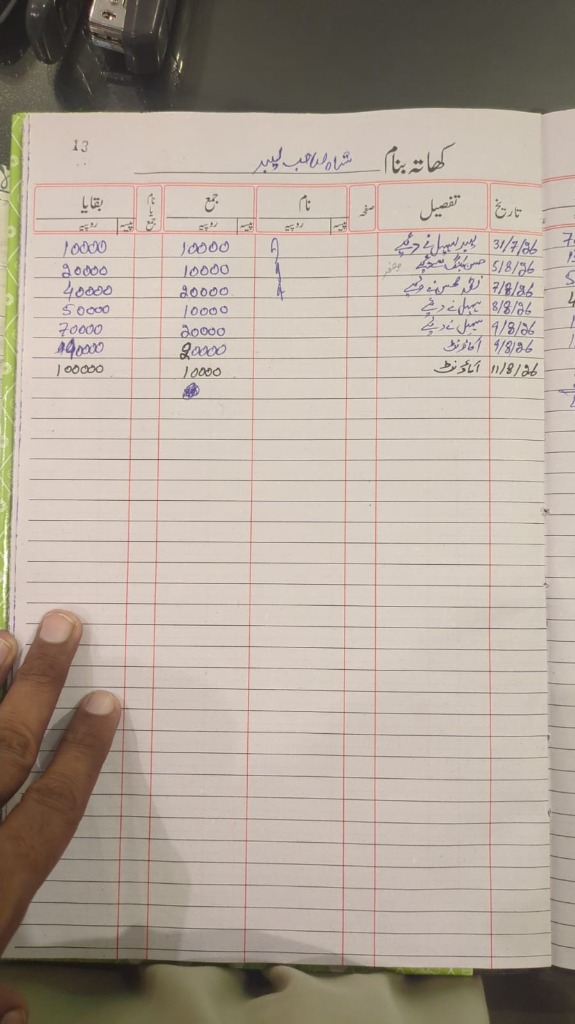 13
کھاتہ بنام شاہ صاحب لیبر
تاریخ تفصیل صفحہ نام جمع نام یا جمع بقایا
روپیہ پیسہ روپیہ پیسہ روپیہ پیسہ
31/7/26 لیبر سہیل نے دیئے 10000 10000
5/8/26 10000 20000
7/8/26 نقد نے دیئے 20000 40000
8/8/26 سہیل نے دیئے 10000 50000
9/8/26 سہیل نے دیئے 20000 70000
9/8/26 اماؤنٹ 20000 90000
11/8/26 اماؤنٹ 10000 100000